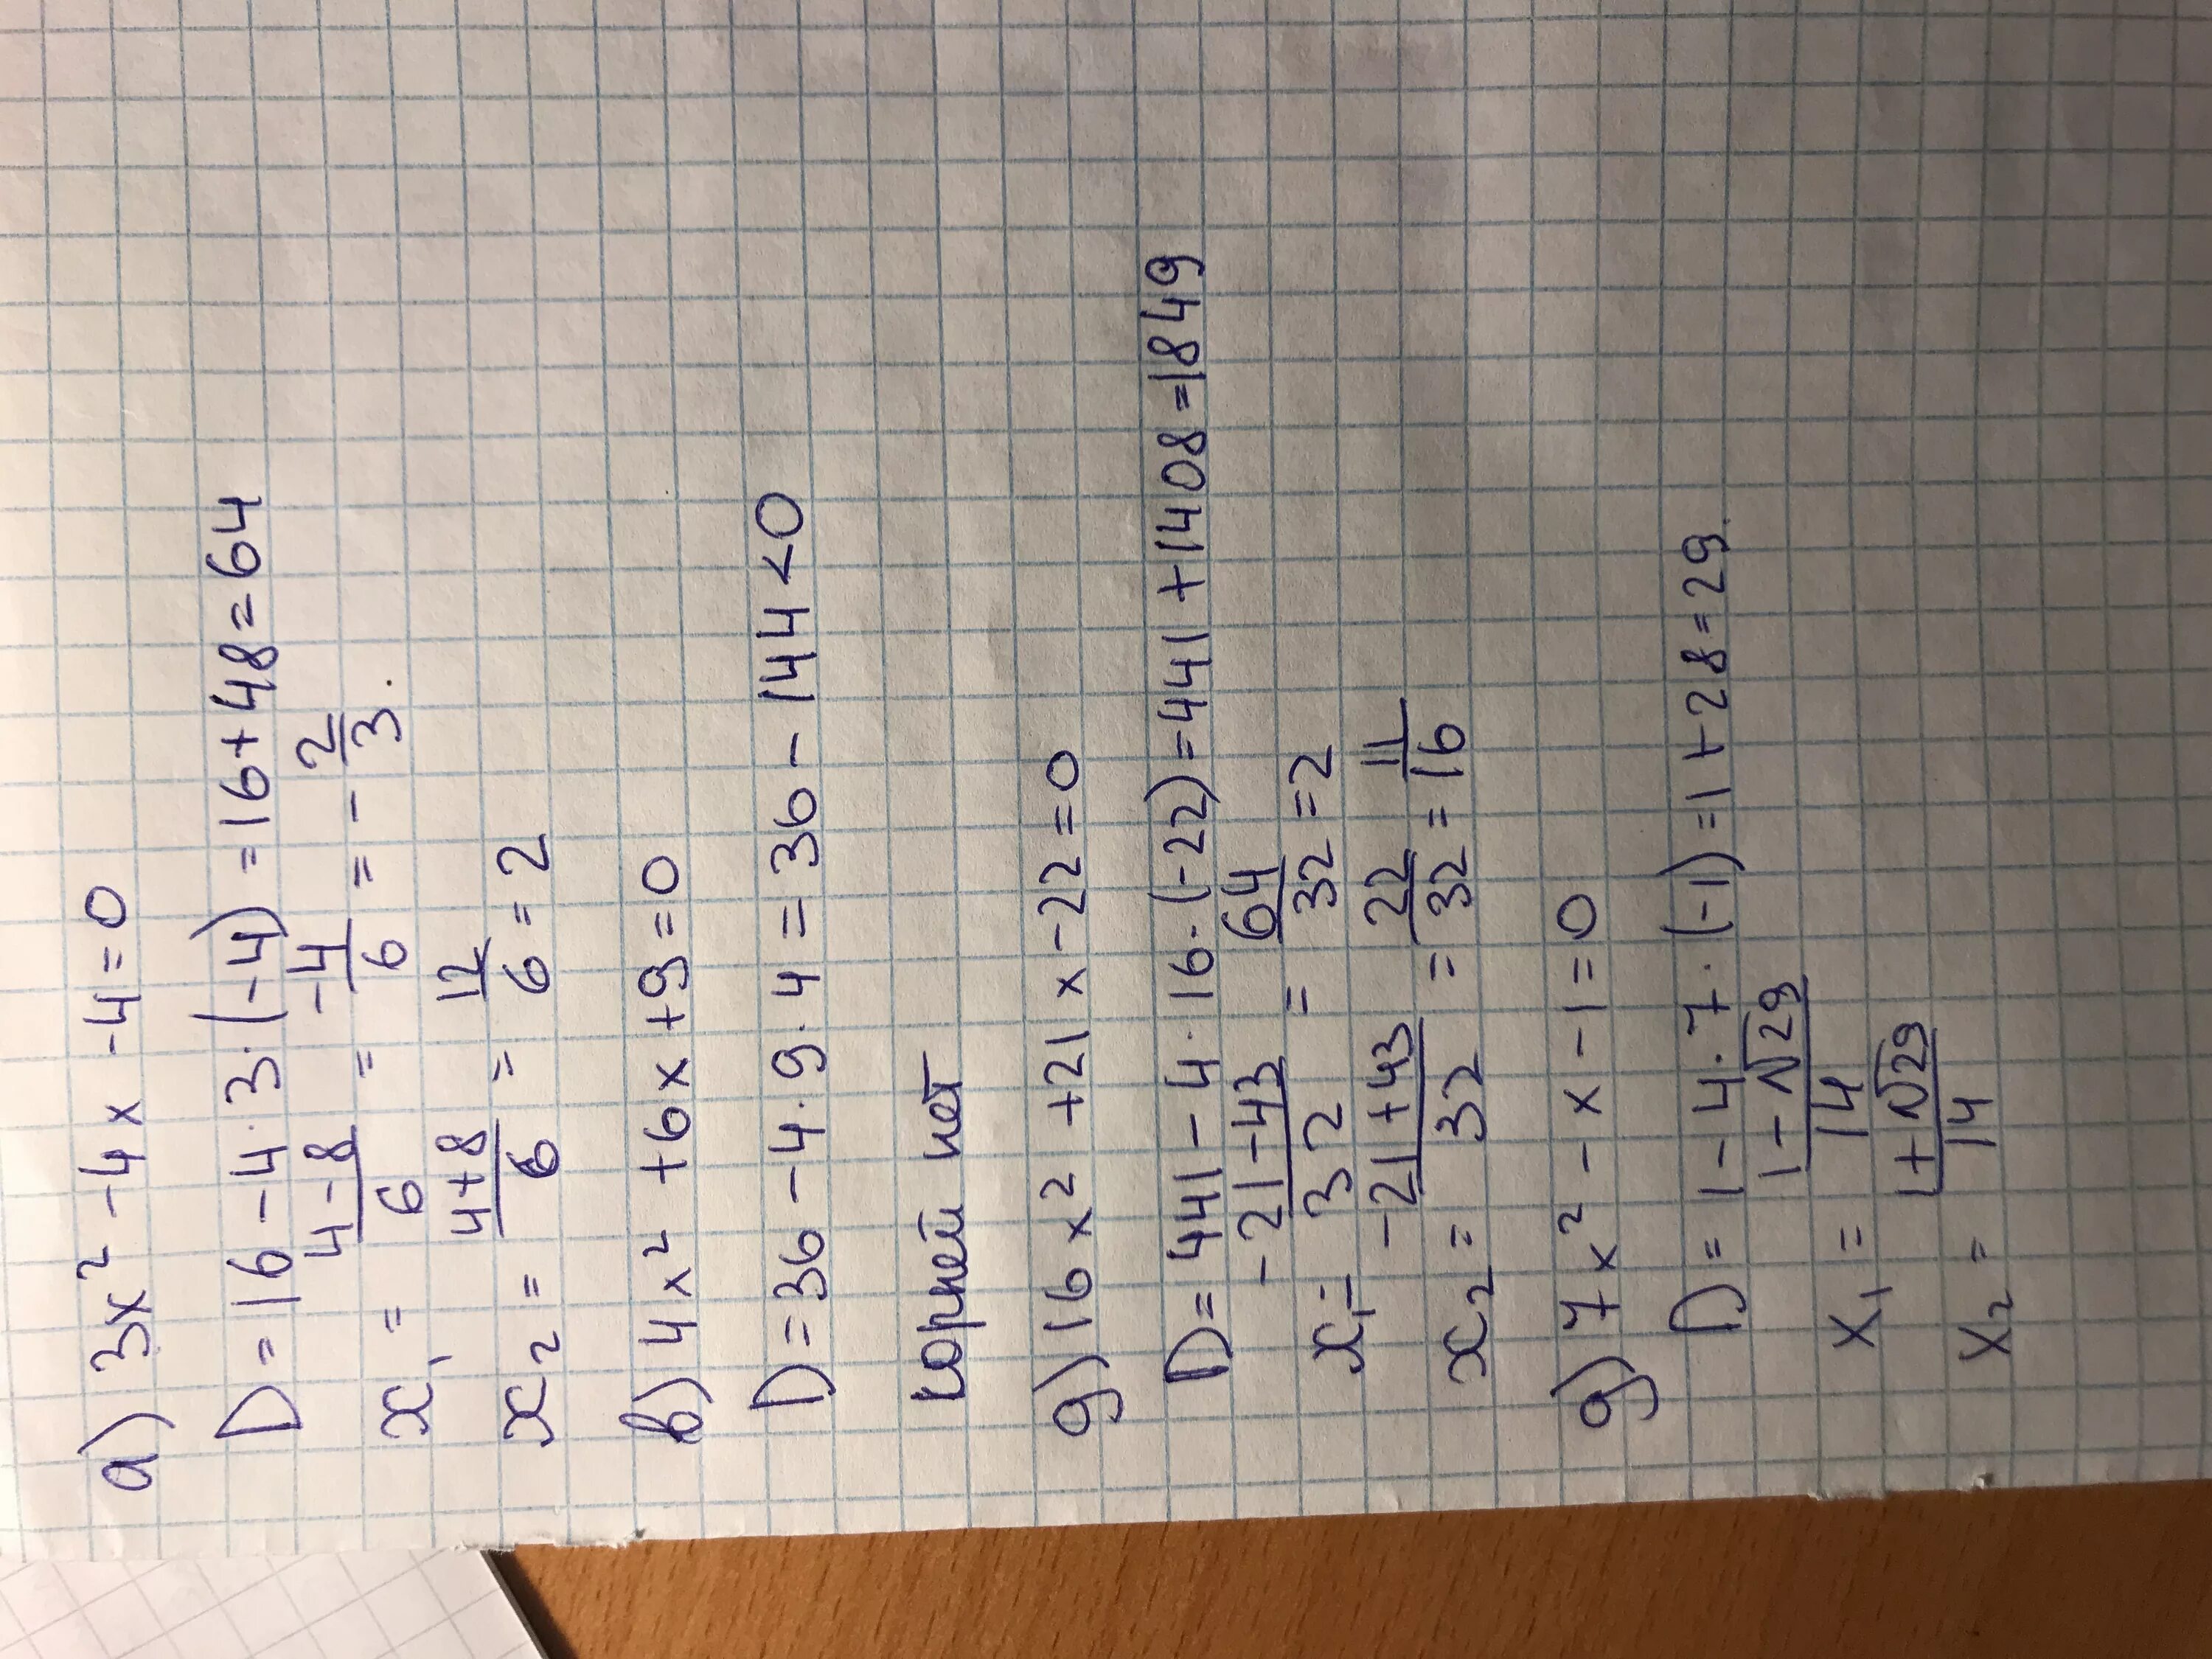 а) 3x² - 4x - 4 = 0
D = 16 - 4 · 3 · (-4) = 16 + 48 = 64
x₁ = (4 - 8)/6 = -4/6 = - 2/3.
x₂ = (4 + 8)/6 = 12/6 = 2
в) 4x² + 6x + 9 = 0
D = 36 - 4 · 9 · 4 = 36 - 144 < 0
корней нет
g) 16x² + 21x - 22 = 0
D = 441 - 4 · 16 · (-22) = 441 + 1408 = 1849
x₁ = (-21 - 43)/32 = 64/32 = 2
x₂ = (-21 + 43)/32 = 22/32 = 11/16
g) 7x² - x - 1 = 0
D = 1 - 4 · 7 · (-1) = 1 + 28 = 29.
x₁ = (1 - √29)/14
x₂ = (1 + √29)/14